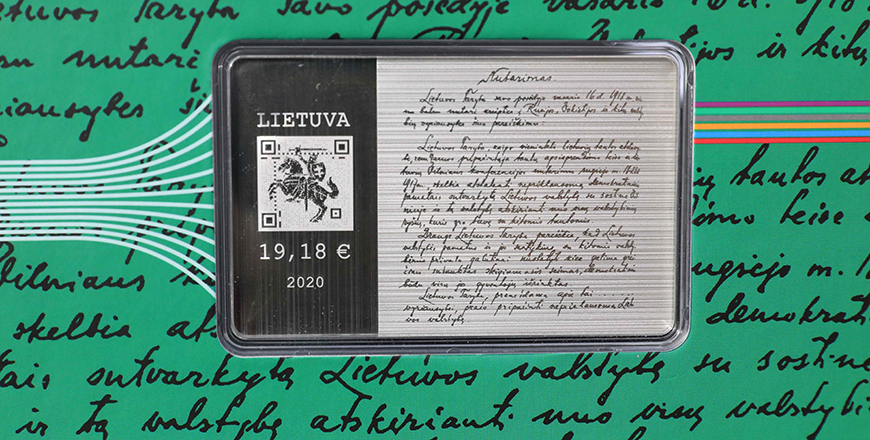 etuvos Taryba savo posėdyje vasario 16 d. 1918
nutari ir kitų
riausybes
LIETUVA
19,18 €
2020
Nutarimas.
Lietuvos Taryba savo posėdyje vasario 16 d. 1918 m. vie
nu balsu nutarė kreiptis: į Rusijos, Vokietijos ir kitų valsty
bių vyriausybes šiuo pareiškimu:
Lietuvos Taryba, kaipo vienintelė lietuvių tautos atstovy
bė, remdamos pripažintąja tautų apsisprendimo teise ir lie
tuvių Vilniaus konferencijos nutarimu rugsėjo m. 18-23 d.
1917 m., skelbia atstatanti nepriklausomą demokratiniais
pamatais sutvarkytą Lietuvos valstybę su sostine Vil
niuje ir tą valstybę atskirianti nuo visų valstybinių
ryšių, kurie yra buvę su kitomis tautomis.
Drauge Lietuvos Taryba pareiškia, kad Lietuvos
valstybės pamatus ir jos santykius su kitomis valsty
bėmis privalo galutinai nustatyti kiek galima grei
čiau sušauktas steigiamasis seimas, demokratiniu
būdu visų jos gyventojų išrinktas.
Lietuvos Taryba, pranešdama apie tai
vyriausybei, prašo pripažinti nepriklausomą Lietu
vos valstybę.
ių tautos at
imo teise
Vilniaus
ugsėjo m. 18
skelbia ats demokrati
tais sutvarkytą Lietuvos valstybę su sostine
ir tą valstybę atskirianti nuo visų valstybi